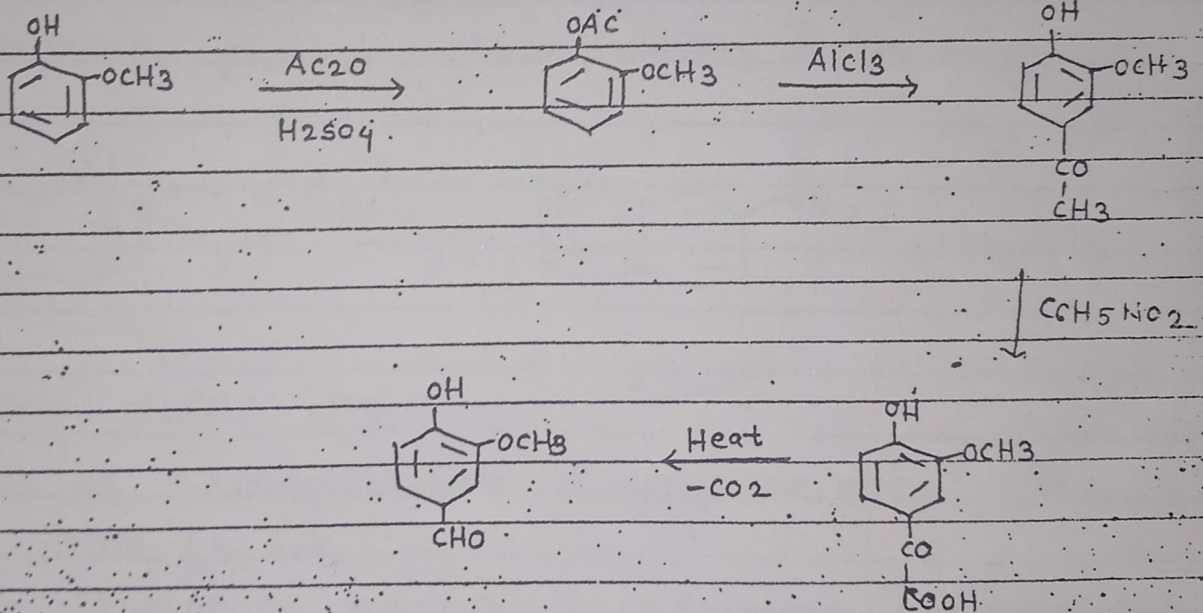 OH
OCH3
Ac2O
H2SO4.
OAC
OCH3
AlCl3
OH
OCH3
CO
CH3
C6H5NO2
OH
OCH3
CO
COOH
Heat
-CO2
OH
OCH3
CHO